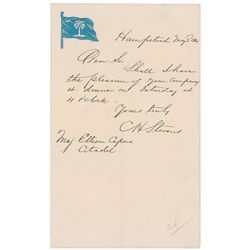 Hampstead May
Dear Sir Shall I have
the pleasure of your company
at dinner on Saturday at
4 o'clock
Yours truly
C H Stevens
Maj Ellison Capers
Citadel